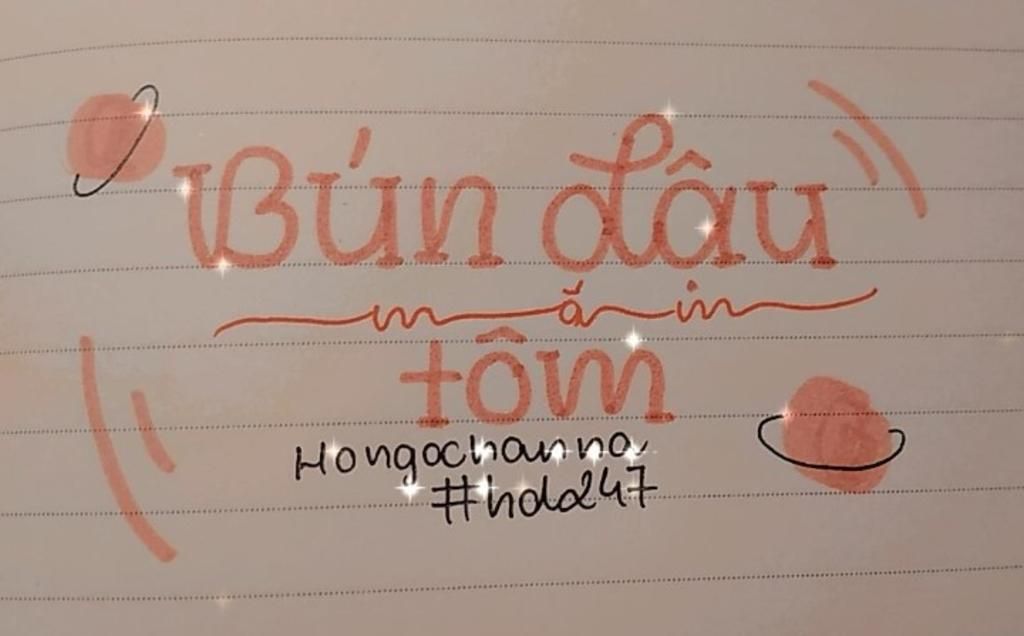 Bún đâu
mắm
tôm
Hongochanna
#hdd247